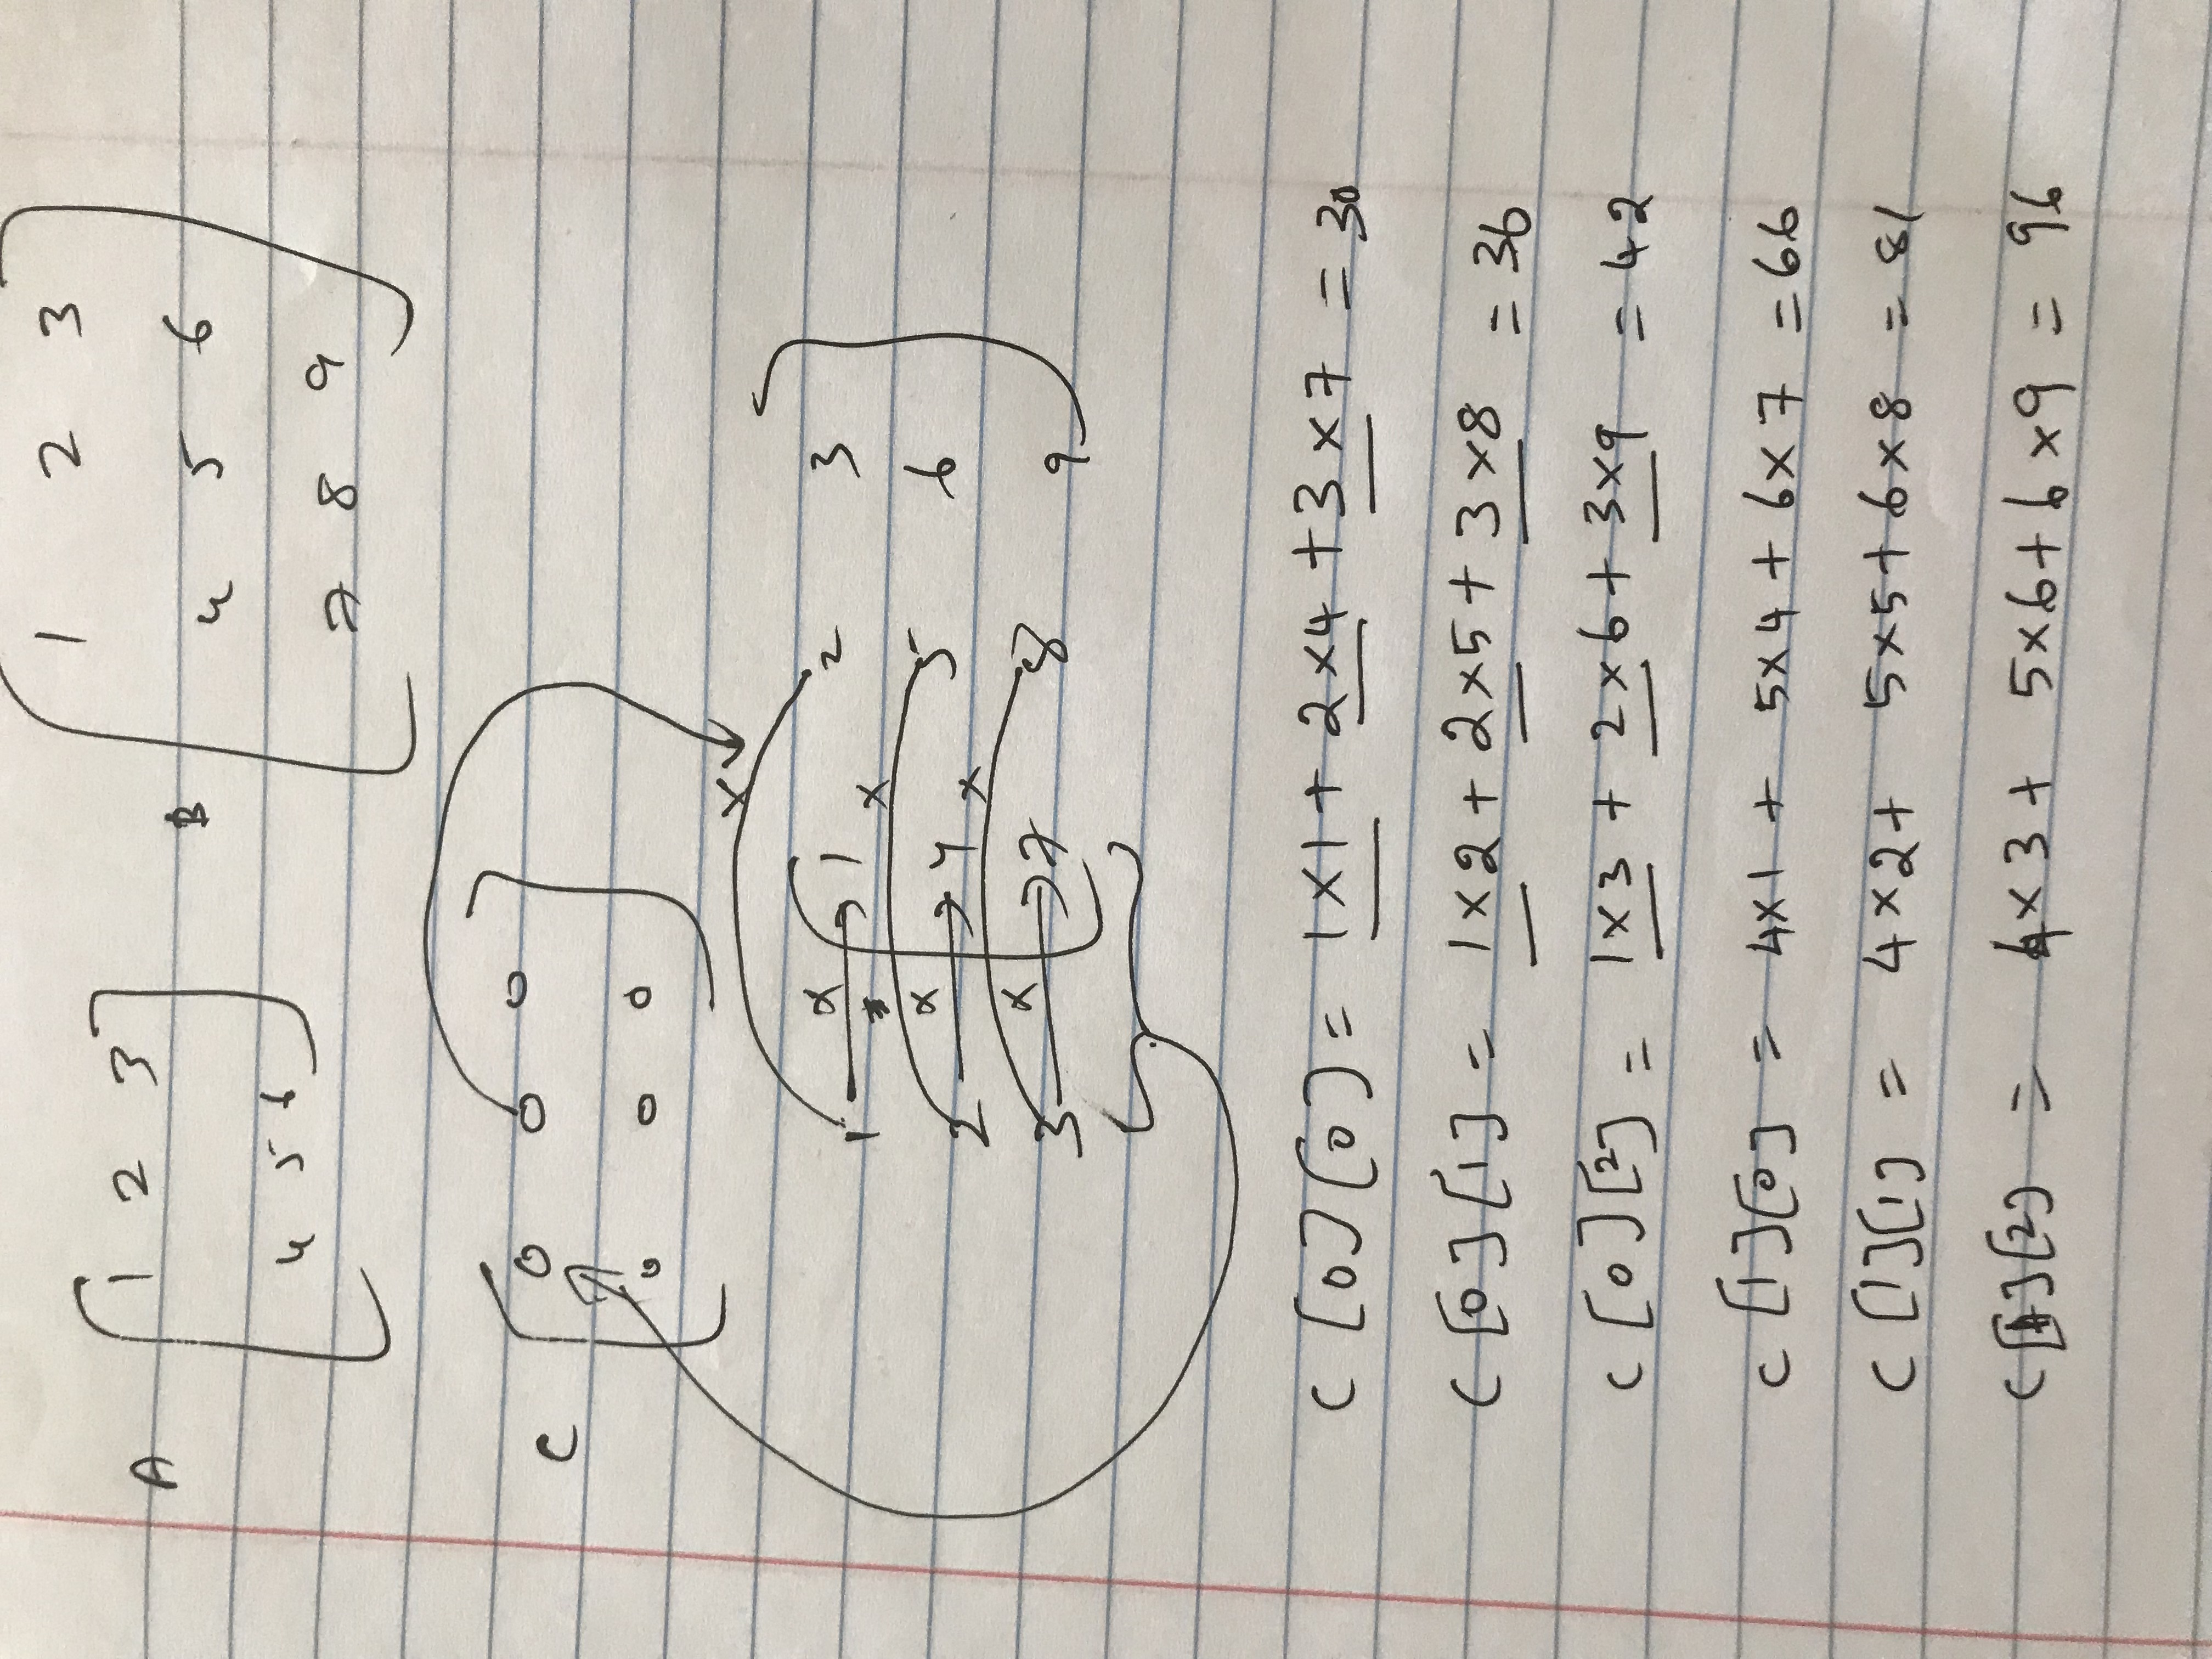 A 1 2 3
4 5 6
B 1 2 3
4 5 6
7 8 9
C 0 0 0
0 0 0
×
1 × 1 2 3
×
2 × 4 5 6
×
3 × 7 8 9
C[0][0] = 1×1 + 2×4 + 3×7 = 30
C[0][1] = 1×2 + 2×5 + 3×8 = 36
C[0][2] = 1×3 + 2×6 + 3×9 = 42
C[1][0] = 4×1 + 5×4 + 6×7 = 66
C[1][1] = 4×2 + 5×5 + 6×8 = 81
C[1][2] = 4×3 + 5×6 + 6×9 = 96